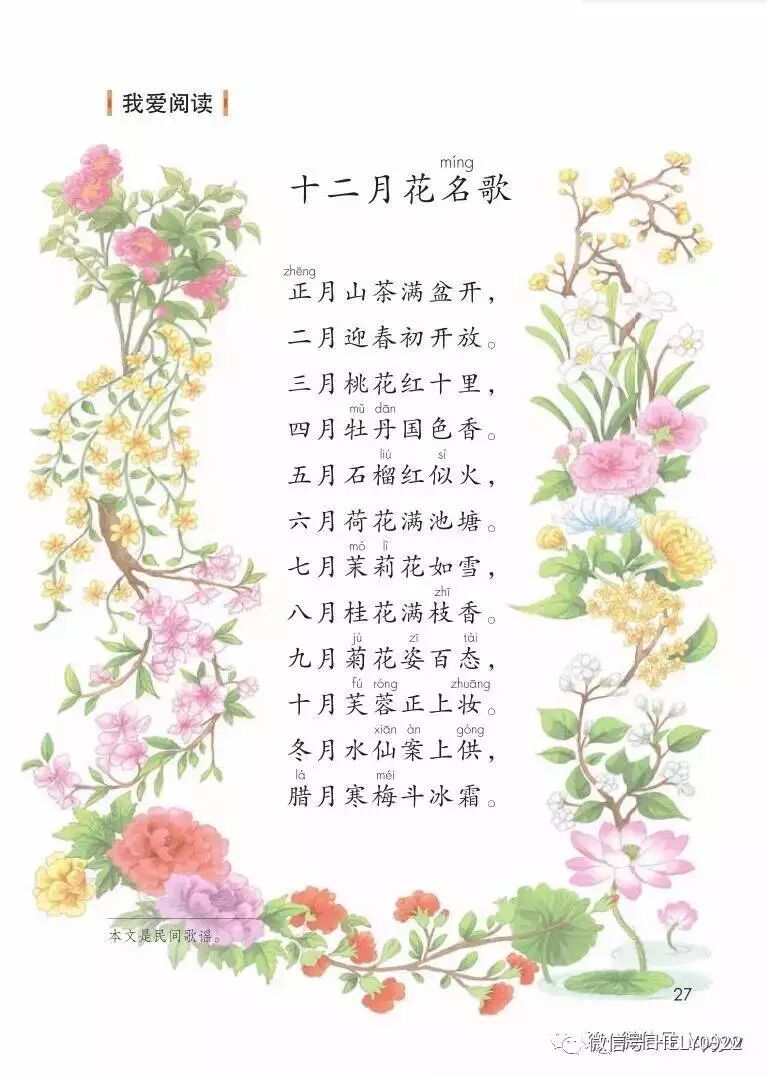 我爱阅读
míng
十二月花名歌
zhēng
正月山茶满盆开，
二月迎春初开放。
三月桃花红十里，
mǔ dān
四月牡丹国色香。
liú sì
五月石榴红似火，
六月荷花满池塘。
mò lì
七月茉莉花如雪，
zhī
八月桂花满枝香。
jú zī tài
九月菊花姿百态，
fú róng zhuāng
十月芙蓉正上妆。
xiān àn gòng
冬月水仙案上供，
là méi
腊月寒梅斗冰霜。
本文是民间歌谣。
27